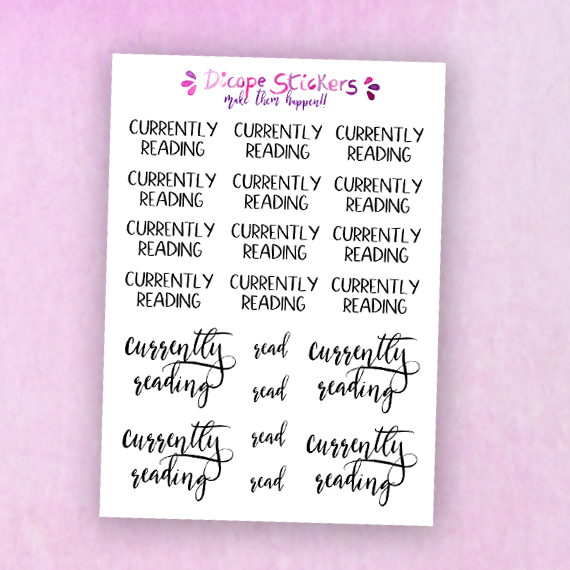 Dicope Stickers
make them happen!!
CURRENTLY CURRENTLY CURRENTLY
READING READING READING
CURRENTLY CURRENTLY CURRENTLY
READING READING READING
CURRENTLY CURRENTLY CURRENTLY
READING READING READING
CURRENTLY CURRENTLY CURRENTLY
READING READING READING
currently read currently
reading read reading
currently read currently
reading read reading